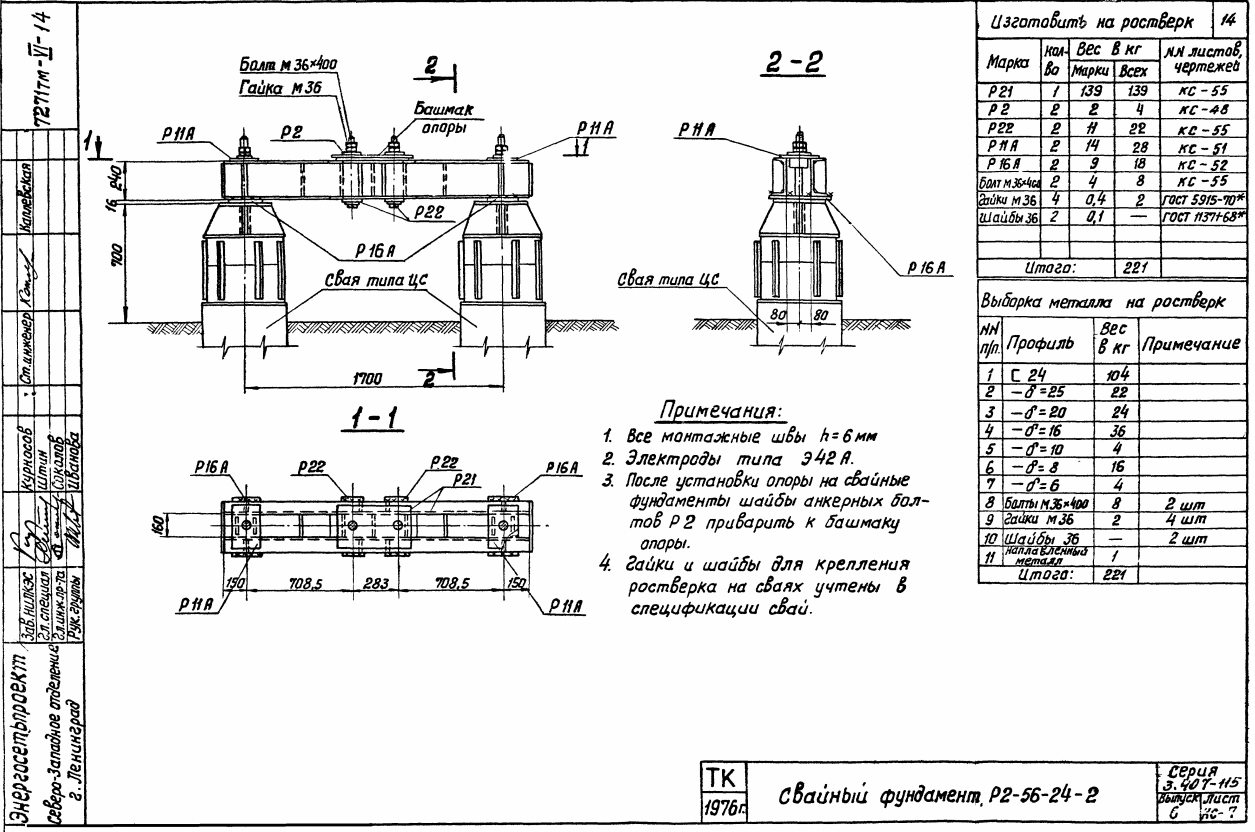 7271тм-VI-14
Каплевская
Ст.инженер
Курносов
Штин
Соколов
Иванова
Зав.НИЛКЭС
Гл.специал
Гл.инж.пр-та
Рук.группы
Энергосетьпроект
Северо-Западное отделение
г. Ленинград
Болт м36×400
Гайка м36
2
Башмак
опоры
1
Р11А
Р2
Р11А
1
240
16
700
Р22
Р16А
Свая типа ЦС
2
1700
2-2
Р11А
Р16А
Свая типа ЦС
80
80
1-1
Р16А
Р22
Р22
Р21
Р16А
160
150
708,5
283
708,5
150
Р11А
Р11А
Примечания:
1. Все монтажные швы h=6мм
2. Электроды типа Э42А.
3. После установки опоры на свайные
фундаменты шайбы анкерных бол-
тов Р2 приварить к башмаку
опоры.
4. Гайки и шайбы для крепления
ростверка на сваях учтены в
спецификации свай.
Изготовить на ростверк 14
Марка Кол-во Вес в кг NN листов, чертежей
Марки Всех
Р21 1 139 139 КС-55
Р2 2 2 4 КС-48
Р22 2 11 22 КС-55
Р11А 2 14 28 КС-51
Р16А 2 9 18 КС-52
Болт м36×400 2 4 8 КС-55
Гайки м36 4 0,4 2 ГОСТ 5915-70*
Шайбы 36 2 0,1 — ГОСТ 11371-68*
Итого: 221
Выборка металла на ростверк
NN п/п. Профиль Вес в кг Примечание
1 [ 24 104
2 -δ=25 22
3 -δ=20 24
4 -δ=16 36
5 -δ=10 4
6 -δ=8 16
7 -δ=6 4
8 Болты м36×400 8 2 шт
9 Гайки м36 2 4 шт
10 Шайбы 36 — 2 шт
11 наплавленный металл 1
Итого: 221
ТК
1976г.
Свайный фундамент Р2-56-24-2
Серия
3.407-115
Выпуск Лист
6 КС-7